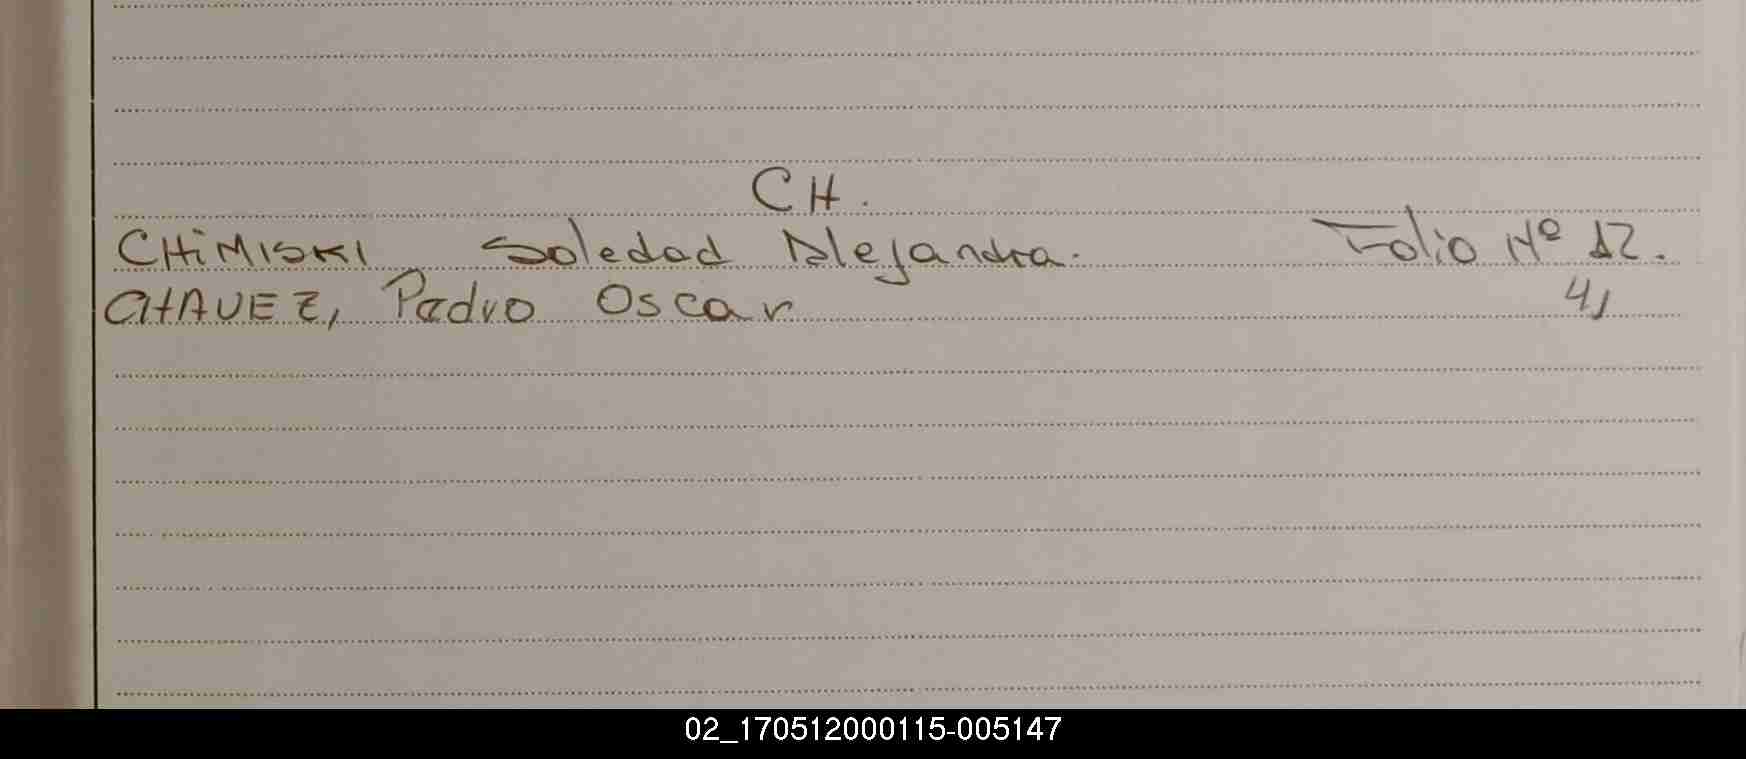 CH.
CHiMISKI Soledad Alejandra. Folio Nº 12.
CHAVEZ, Pedro Oscar 41
02_170512000115-005147